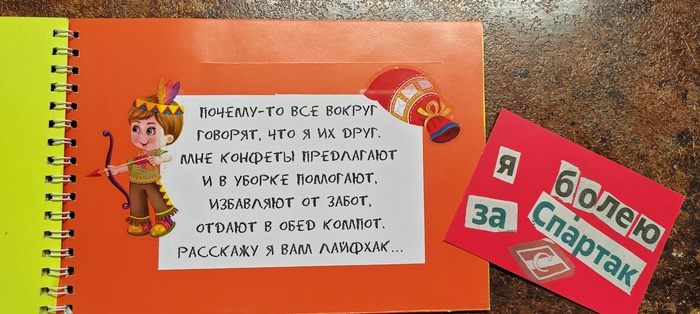 ПОЧЕМУ-ТО ВСЕ ВОКРУГ
ГОВОРЯТ, ЧТО Я ИХ ДРУГ.
МНЕ КОНФЕТЫ ПРЕДЛАГАЮТ
И В УБОРКЕ ПОМОГАЮТ,
ИЗБАВЛЯЮТ ОТ ЗАБОТ,
ОТДАЮТ В ОБЕД КОМПОТ.
РАССКАЖУ Я ВАМ ЛАЙФХАК...
я болею
за Спартак